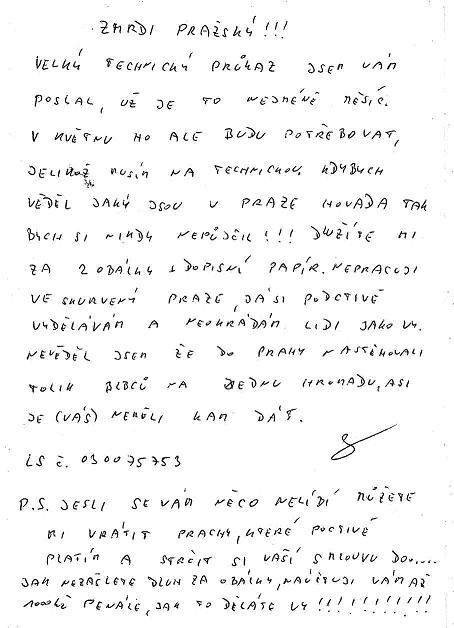 ZMRDI PRAŽSKÝ!!!
VELKÝ TECHNICKÝ PRŮKAZ JSEM VÁM
POSLAL, UŽ JE TO NEJMÉNĚ MĚSÍC.
V KVĚTNU HO ALE BUDU POTŘEBOVAT,
JELIKOŽ MUSÍM NA TECHNICKOU. KDYBYCH
VĚDĚL JAKÝ JSOU V PRAZE HOVADA TAK
BYCH SI NIKDY NEPŮJČIL!!! DLUŽÍTE MI
ZA 2 OBÁLKY S DOPISNÍ PAPÍR. NEPRACUJI
VE ZKURVENÝ PRAZE, JÁ SI PODCTIVĚ
VYDĚLÁVÁM A NEOKRÁDÁM LIDI JAKO VY.
NEVĚDĚL JSEM ŽE DO PRAHY NASTĚHOVALI
TOLIK BLBCŮ NA JEDNU HROMADU, ASI
JE (VÁS) NEMĚLI KAM DÁT.
LS Č. 030075753
P.S. JESLI SE VÁM NĚCO NELÍBÍ MŮŽETE
MI VRÁTIT PRACHY, KTERÉ POCTIVĚ
PLATÍM A STRČIT SI VAŠÍ SMLOUVU DO....
JAK NEZAŠLETE DLUH ZA OBÁLKY, NAÚČTUJI VÁM AŽ
1000KČ PENÁLE, JAK TO DĚLÁTE VY!!!!!!!!!!!